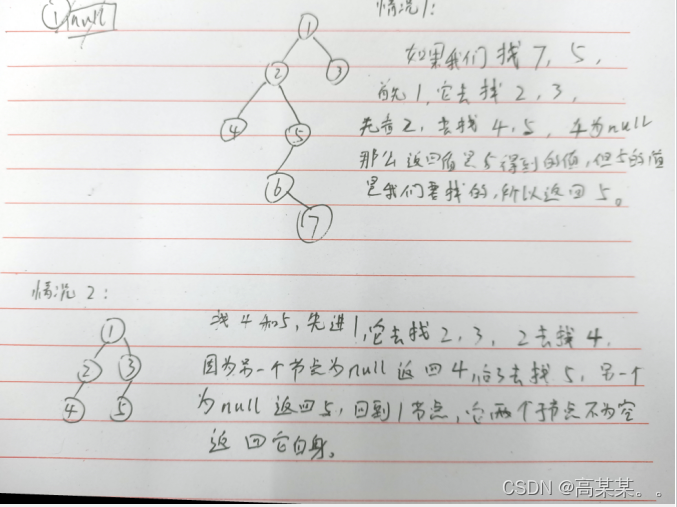 ① null
情况1:
1
2
3
4
5
6
7
如果我们找7, 5,
首先1, 它去找2, 3,
先看2, 去找4, 5, 4为null
那么返回值是5得到的值, 但5的值
是我们要找的, 所以返回5。
情况2:
1
2
3
4
5
找4和5, 先进1, 它去找2, 3, 2去找4,
因为另一个节点为null返回4, 向3去找5, 另一个
为null返回5, 回到1节点, 它两个子节点不为空
返回它自身。
CSDN @高某某。。